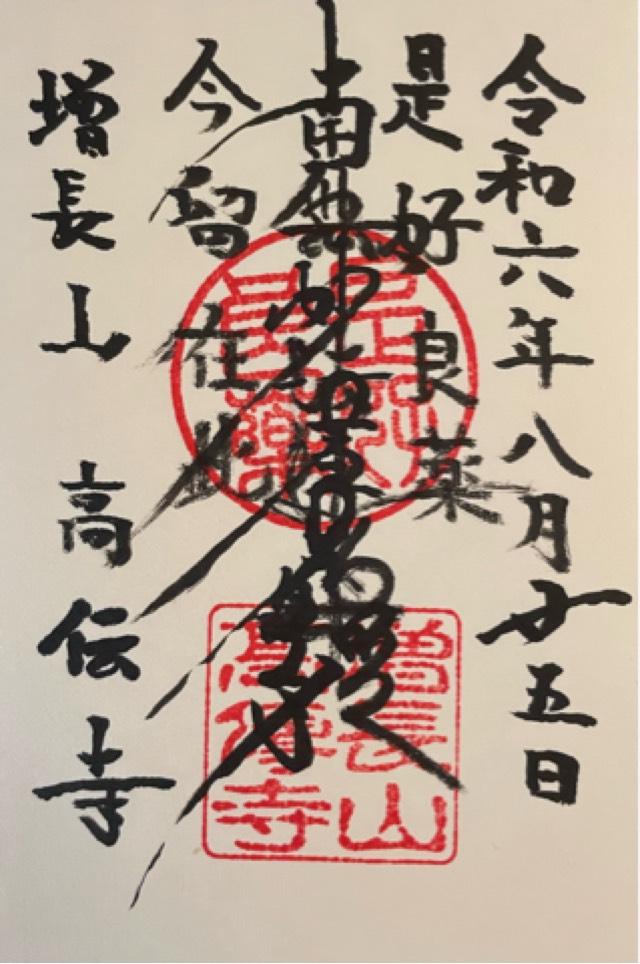 令和六年八月廿五日
是好良薬
南無妙法蓮華経
今留在此
増長山 高伝寺
是好良薬
増長山
高傳寺